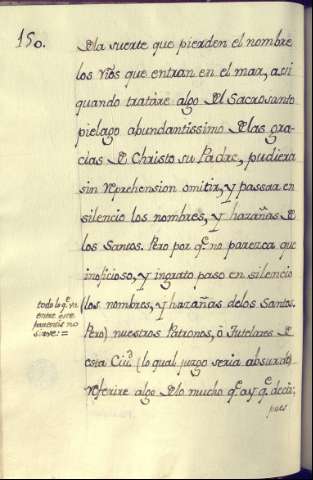 150.
Dla suerte que pierden el nombre
los rios que entran en el mar, assi
quando tratáre algo Dl Sacrosanto
pielago abundantissimo Dlas gra-
cias D Christo su Padre, pudiera
sin reprehension omitir, y passar en
silencio los nombres, y hazañas D
los Santos. Pero por q.e no parezca que
inoficioso, y ingrato paso en silencio
(los nombres, y hazañas delos Santos.
Pero) nuestros Patronos, ò Tutelares D
esta Ciu.d (lo qual juzgo seria absurdo)
referire algo Dlo mucho q.e ay q.e decir,
pues
todo lo q.e va
entre este
parentis no
sirve =